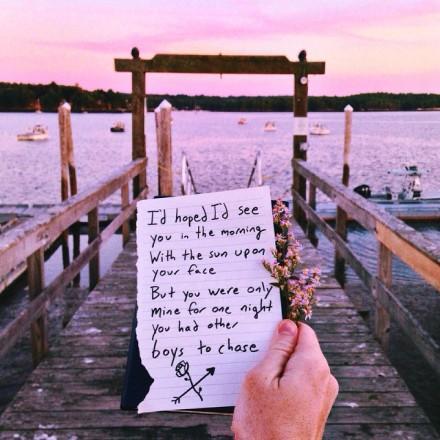 I'd hoped I'd see
you in the morning
With the sun upon
your face
But you were only
mine for one night
you had other
boys to chase